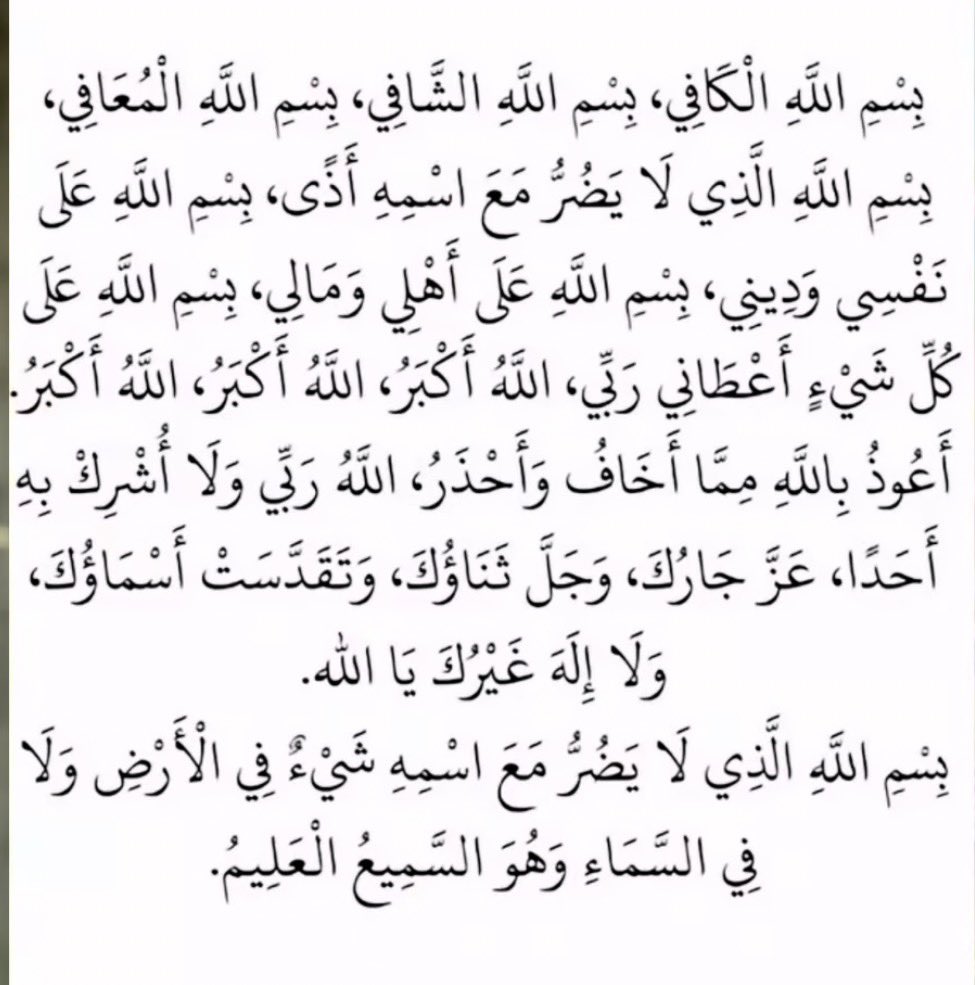 بِسْمِ اللَّهِ الْكَافِي، بِسْمِ اللَّهِ الشَّافِي، بِسْمِ اللَّهِ الْمُعَافِي،
بِسْمِ اللَّهِ الَّذِي لَا يَضُرُّ مَعَ اسْمِهِ أَذًى، بِسْمِ اللَّهِ عَلَى
نَفْسِي وَدِينِي، بِسْمِ اللَّهِ عَلَى أَهْلِي وَمَالِي، بِسْمِ اللَّهِ عَلَى
كُلِّ شَيْءٍ أَعْطَانِي رَبِّي، اللَّهُ أَكْبَرُ، اللَّهُ أَكْبَرُ، اللَّهُ أَكْبَرُ.
أَعُوذُ بِاللَّهِ مِمَّا أَخَافُ وَأَحْذَرُ، اللَّهُ رَبِّي وَلَا أُشْرِكْ بِهِ
أَحَدًا، عَزَّ جَارُكَ، وَجَلَّ ثَنَاؤُكَ، وَتَقَدَّسَتْ أَسْمَاؤُكَ،
وَلَا إِلَهَ غَيْرُكَ يَا الله.
بِسْمِ اللَّهِ الَّذِي لَا يَضُرُّ مَعَ اسْمِهِ شَيْءٌ فِي الْأَرْضِ وَلَا
فِي السَّمَاءِ وَهُوَ السَّمِيعُ الْعَلِيمُ.